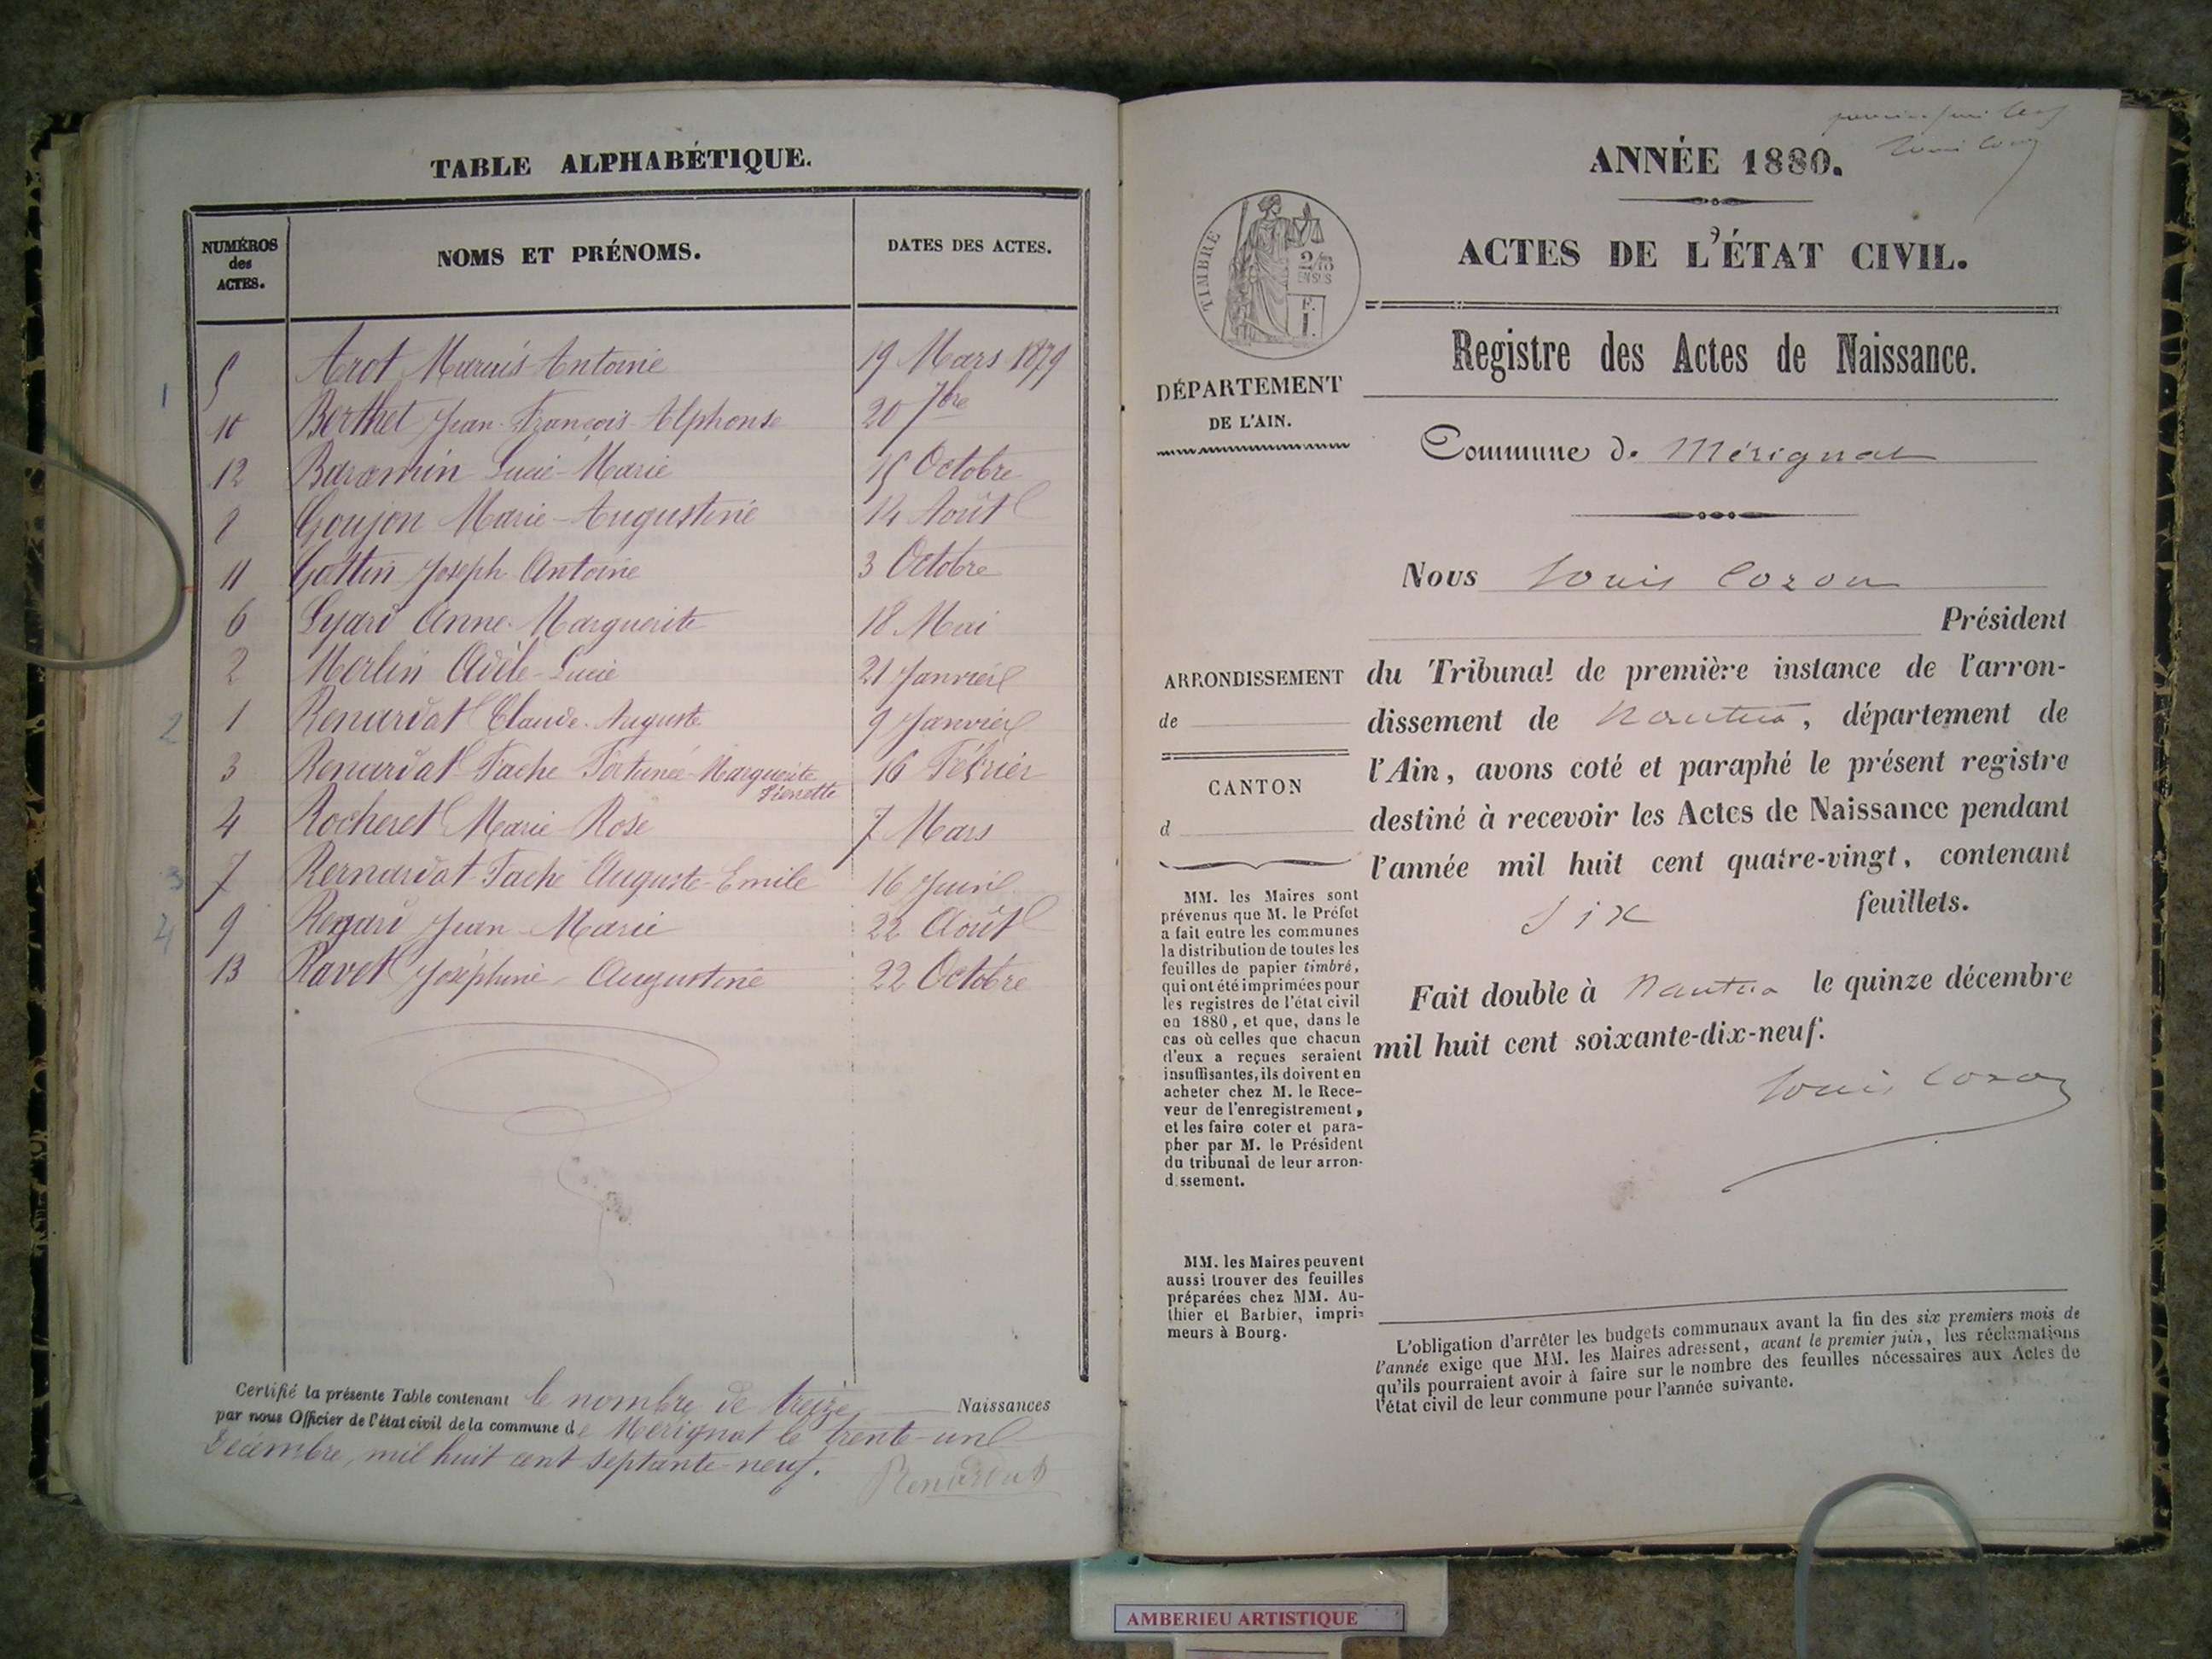 TABLE ALPHABÉTIQUE.
NUMÉROS des ACTES.
NOMS ET PRÉNOMS.
DATES DES ACTES.
5 Arot Marius Antoine 19 Mars 1879
10 Berthet Jean François Alphonse 20 7bre
12 Baramin Lucie Marie 15 Octobre
8 Goujon Marie Augustine 14 Août
11 Gottin Joseph Antoine 3 Octobre
6 Lyard Anne Marguerite 18 Mai
2 Merlin Adèle Lucie 21 Janvier
2 1 Renardat Claude Auguste 9 Janvier
3 Renardat Fache Fortunée Marguerite Pierrette 16 Février
4 Rocheret Marie Rose 7 Mars
3 7 Rernardat Fache Auguste Emile 16 Juin
4 9 Renard Jean Marie 22 Août
13 Ravet Joséphine Augustine 22 Octobre
Certifié la présente Table contenant le nombre de treize Naissances
par nous Officier de l'état civil de la commune de Mérignat le trente-un
Décembre, mil huit cent septante-neuf.
Renardat
ANNÉE 1880.
ACTES DE L'ÉTAT CIVIL.
TIMBRE
2/10
EN SUS
F.
1.
Registre des Actes de Naissance.
DÉPARTEMENT
DE L'AIN.
Commune de Mérignat
Nous Louis Cozon
Président
ARRONDISSEMENT
de
CANTON
d
du Tribunal de première instance de l'arron-
dissement de Nantua, département de
l'Ain, avons coté et paraphé le présent registre
destiné à recevoir les Actes de Naissance pendant
l'année mil huit cent quatre-vingt, contenant
Six feuillets.
Fait double à Nantua le quinze décembre
mil huit cent soixante-dix-neuf.
Louis Cozon
MM. les Maires sont
prévenus que M. le Préfet
a fait entre les communes
la distribution de toutes les
feuilles de papier timbré,
qui ont été imprimées pour
les registres de l'état civil
en 1880, et que, dans le
cas où celles que chacun
d'eux a reçues seraient
insuffisantes, ils doivent en
acheter chez M. le Rece-
veur de l'enregistrement,
et les faire coter et para-
pher par M. le Président
du tribunal de leur arron-
d ssement.
MM. les Maires peuvent
aussi trouver des feuilles
préparées chez MM. Au-
thier et Barbier, impri-
meurs à Bourg.
L'obligation d'arrêter les budgets communaux avant la fin des six premiers mois de
l'année exige que MM. les Maires adressent, avant le premier juin, les réclamations
qu'ils pourraient avoir à faire sur le nombre des feuilles nécessaires aux Actes de
l'état civil de leur commune pour l'année suivante.
AMBERIEU ARTISTIQUE